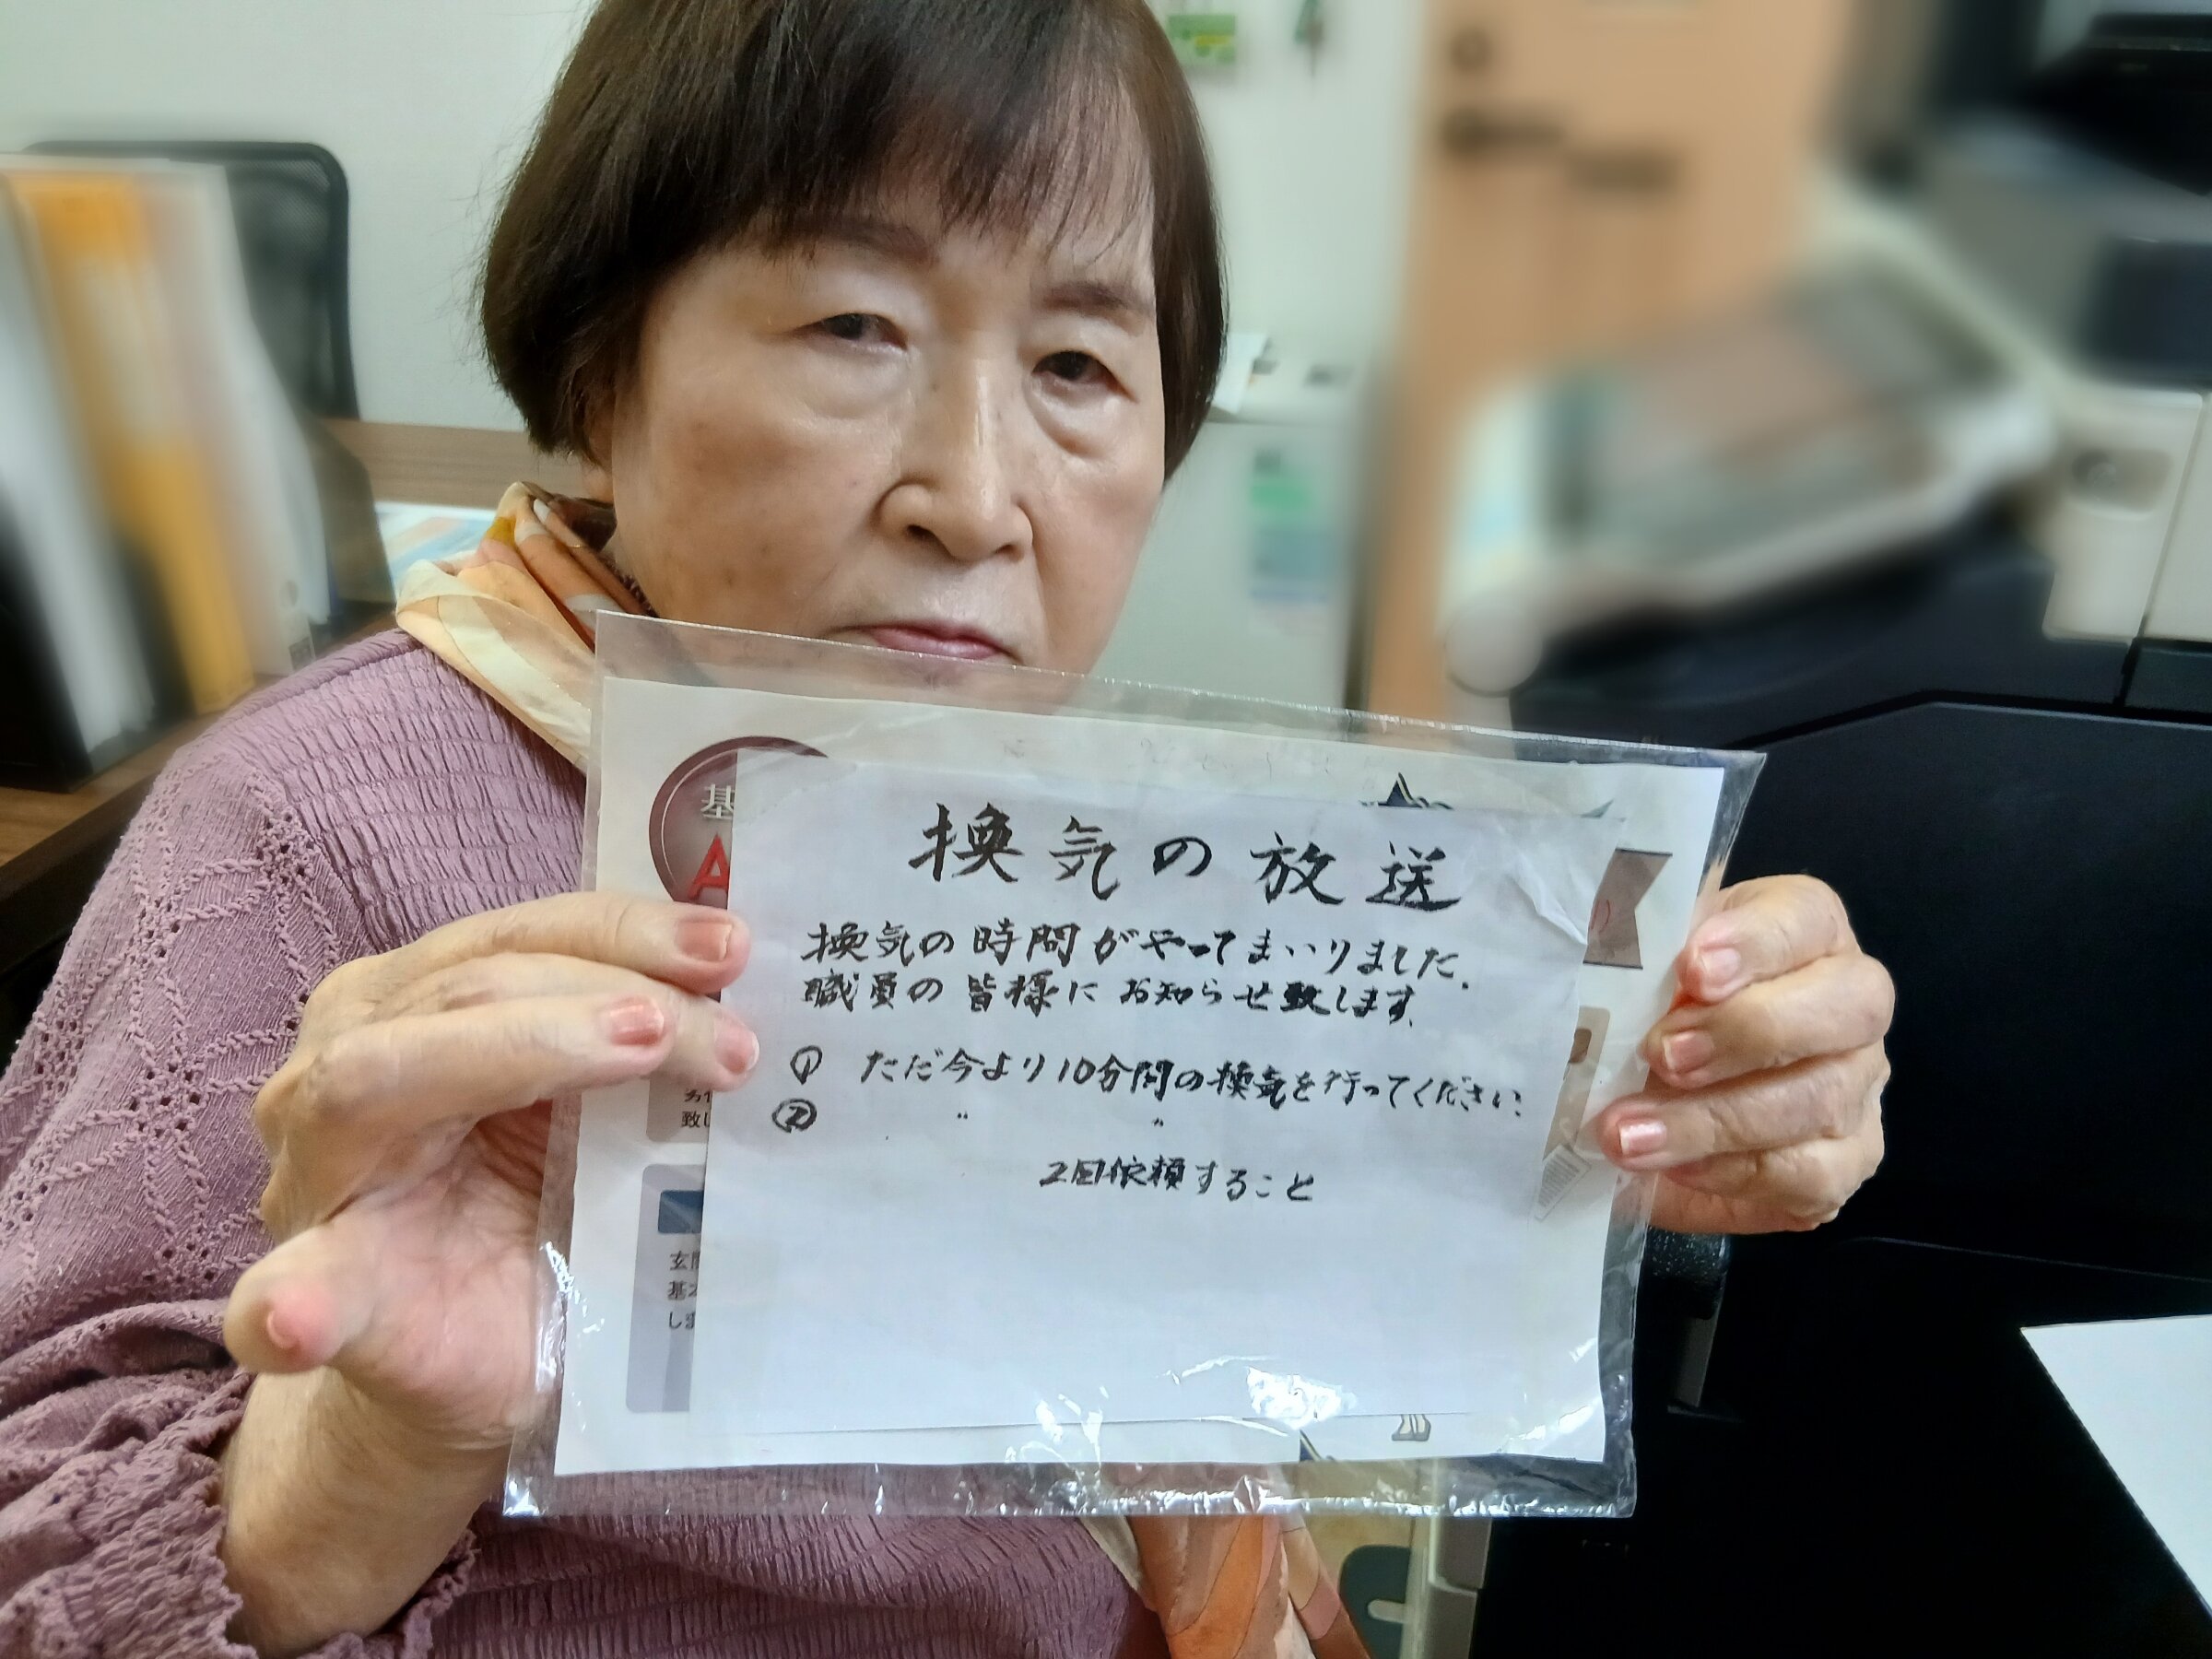 換気の放送
換気の時間がやってまいりました.
職員の皆様にお知らせ致します.
① ただ今より10分間の換気を行ってください.
② 〃 〃
2回依頼すること
基
A
致し
玄関
基本
しま